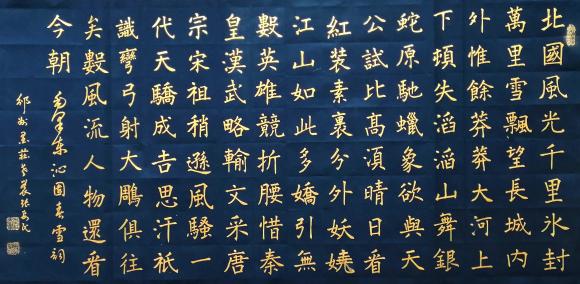 北國風光千里氷封
萬里雪飄望長城内
外惟餘莽莽大河上
下頓失滔滔山舞銀
蛇原馳蠟象欲與天
公試比高湏晴日看
紅裝素裹分外妖嬈
江山如此多嬌引無
數英雄競折腰惜秦
皇漢武略輸文采唐
宗宋祖稍遜風騷一
代天驕成吉思汗祇
識彎弓射大鵰俱往
矣數風流人物還看
今朝
毛澤東沁園春雪詞